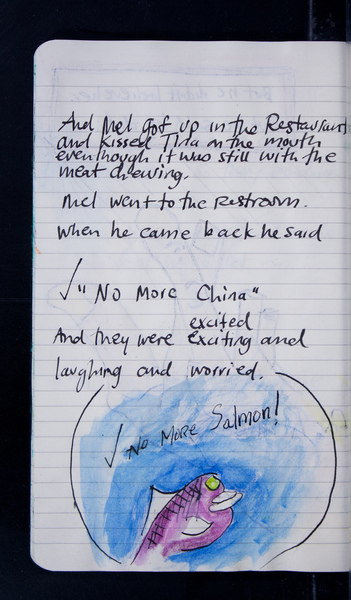 And Mel got up in the Restaurant
and kissed Tina on the mouth
even though it was still with the
meat chewing.
Mel went to the Restroom.
When he came back he said
✓ "No More China"
excited
And they were exciting and
laughing and worried.
✓ No More Salmon!